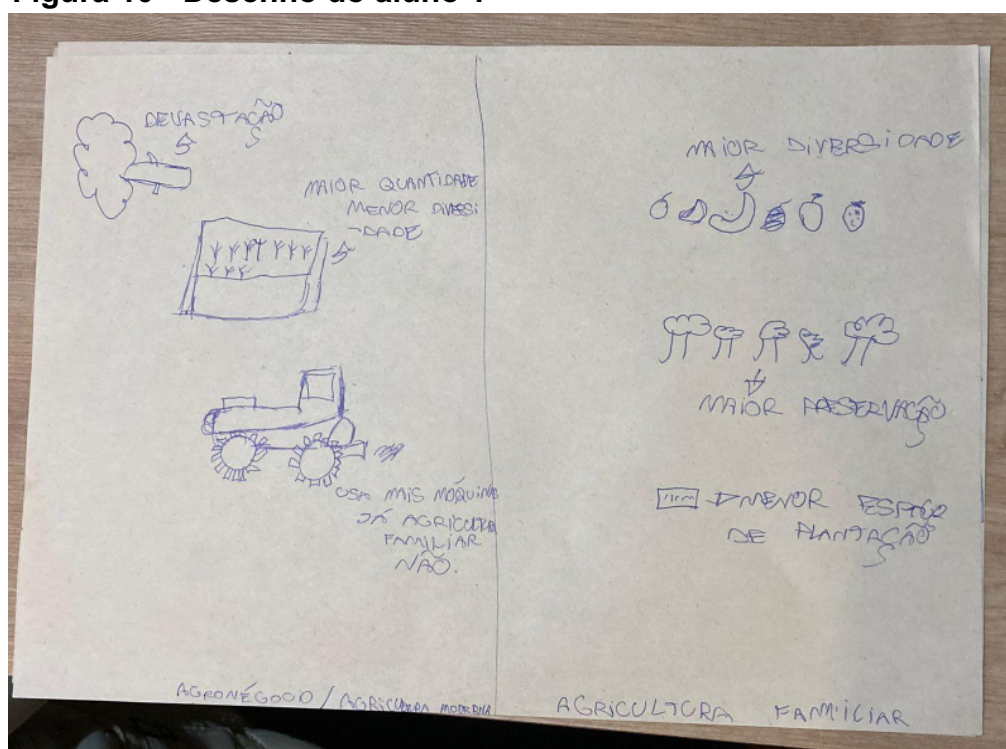 DEVASTAÇÃO
MAIOR QUANTIDADE
MENOR DIVERSI
-DADE
USA MAIS MÁQUINA
JÁ AGRICULTURA
FAMILIAR
NÃO.
AGRONÉGOCIO / AGRICULTURA MODERNA
MAIOR DIVERSIDADE
MAIOR PRESERVAÇÃO
MENOR ESPAÇO
DE PLANTAÇÃO
AGRICULTURA FAMILIAR